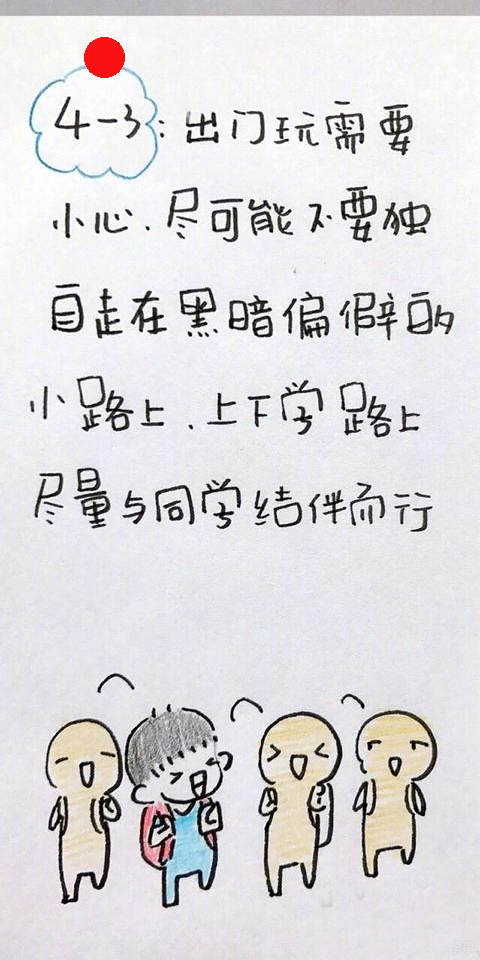 4-3：出门玩需要
小心.尽可能不要独
自走在黑暗偏僻的
小路上.上下学路上
尽量与同学结伴而行